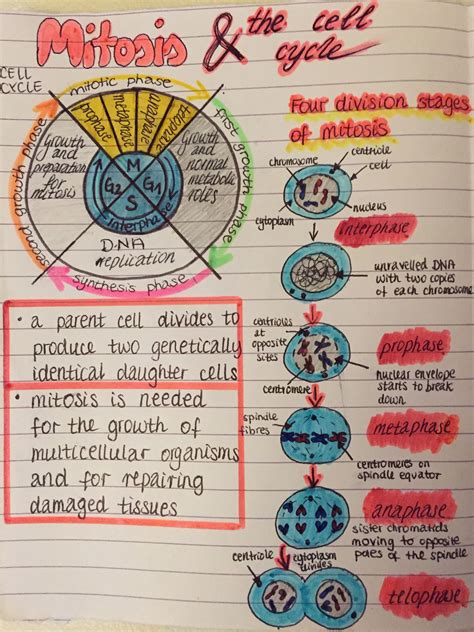 Mitosis & the cell cycle
CELL
CYCLE
mitotic phase
first growth phase
synthesis phase
second growth phase
prophase
metaphase
anaphase
telophase
Growth
and
preparation
for
mitosis
Growth
and
normal
metabolic
roles
M
G2
G1
S
interphase
DNA
replication
• a parent cell divides to
produce two genetically
identical daughter cells
• mitosis is needed
for the growth of
multicellular organisms
and for repairing
damaged tissues
Four division stages
of mitosis
chromosome
centriole
cell
cytoplasm
nucleus
interphase
unravelled DNA
with two copies
of each chromosome
centrioles
at
opposite
sites
prophase
nuclear envelope
starts to break
down
centromere
spindle
fibres
metaphase
centromeres on
spindle equator
anaphase
sister chromatids
moving to opposite
poles of the spindle
centriole
cytoplasm
divides
telophase